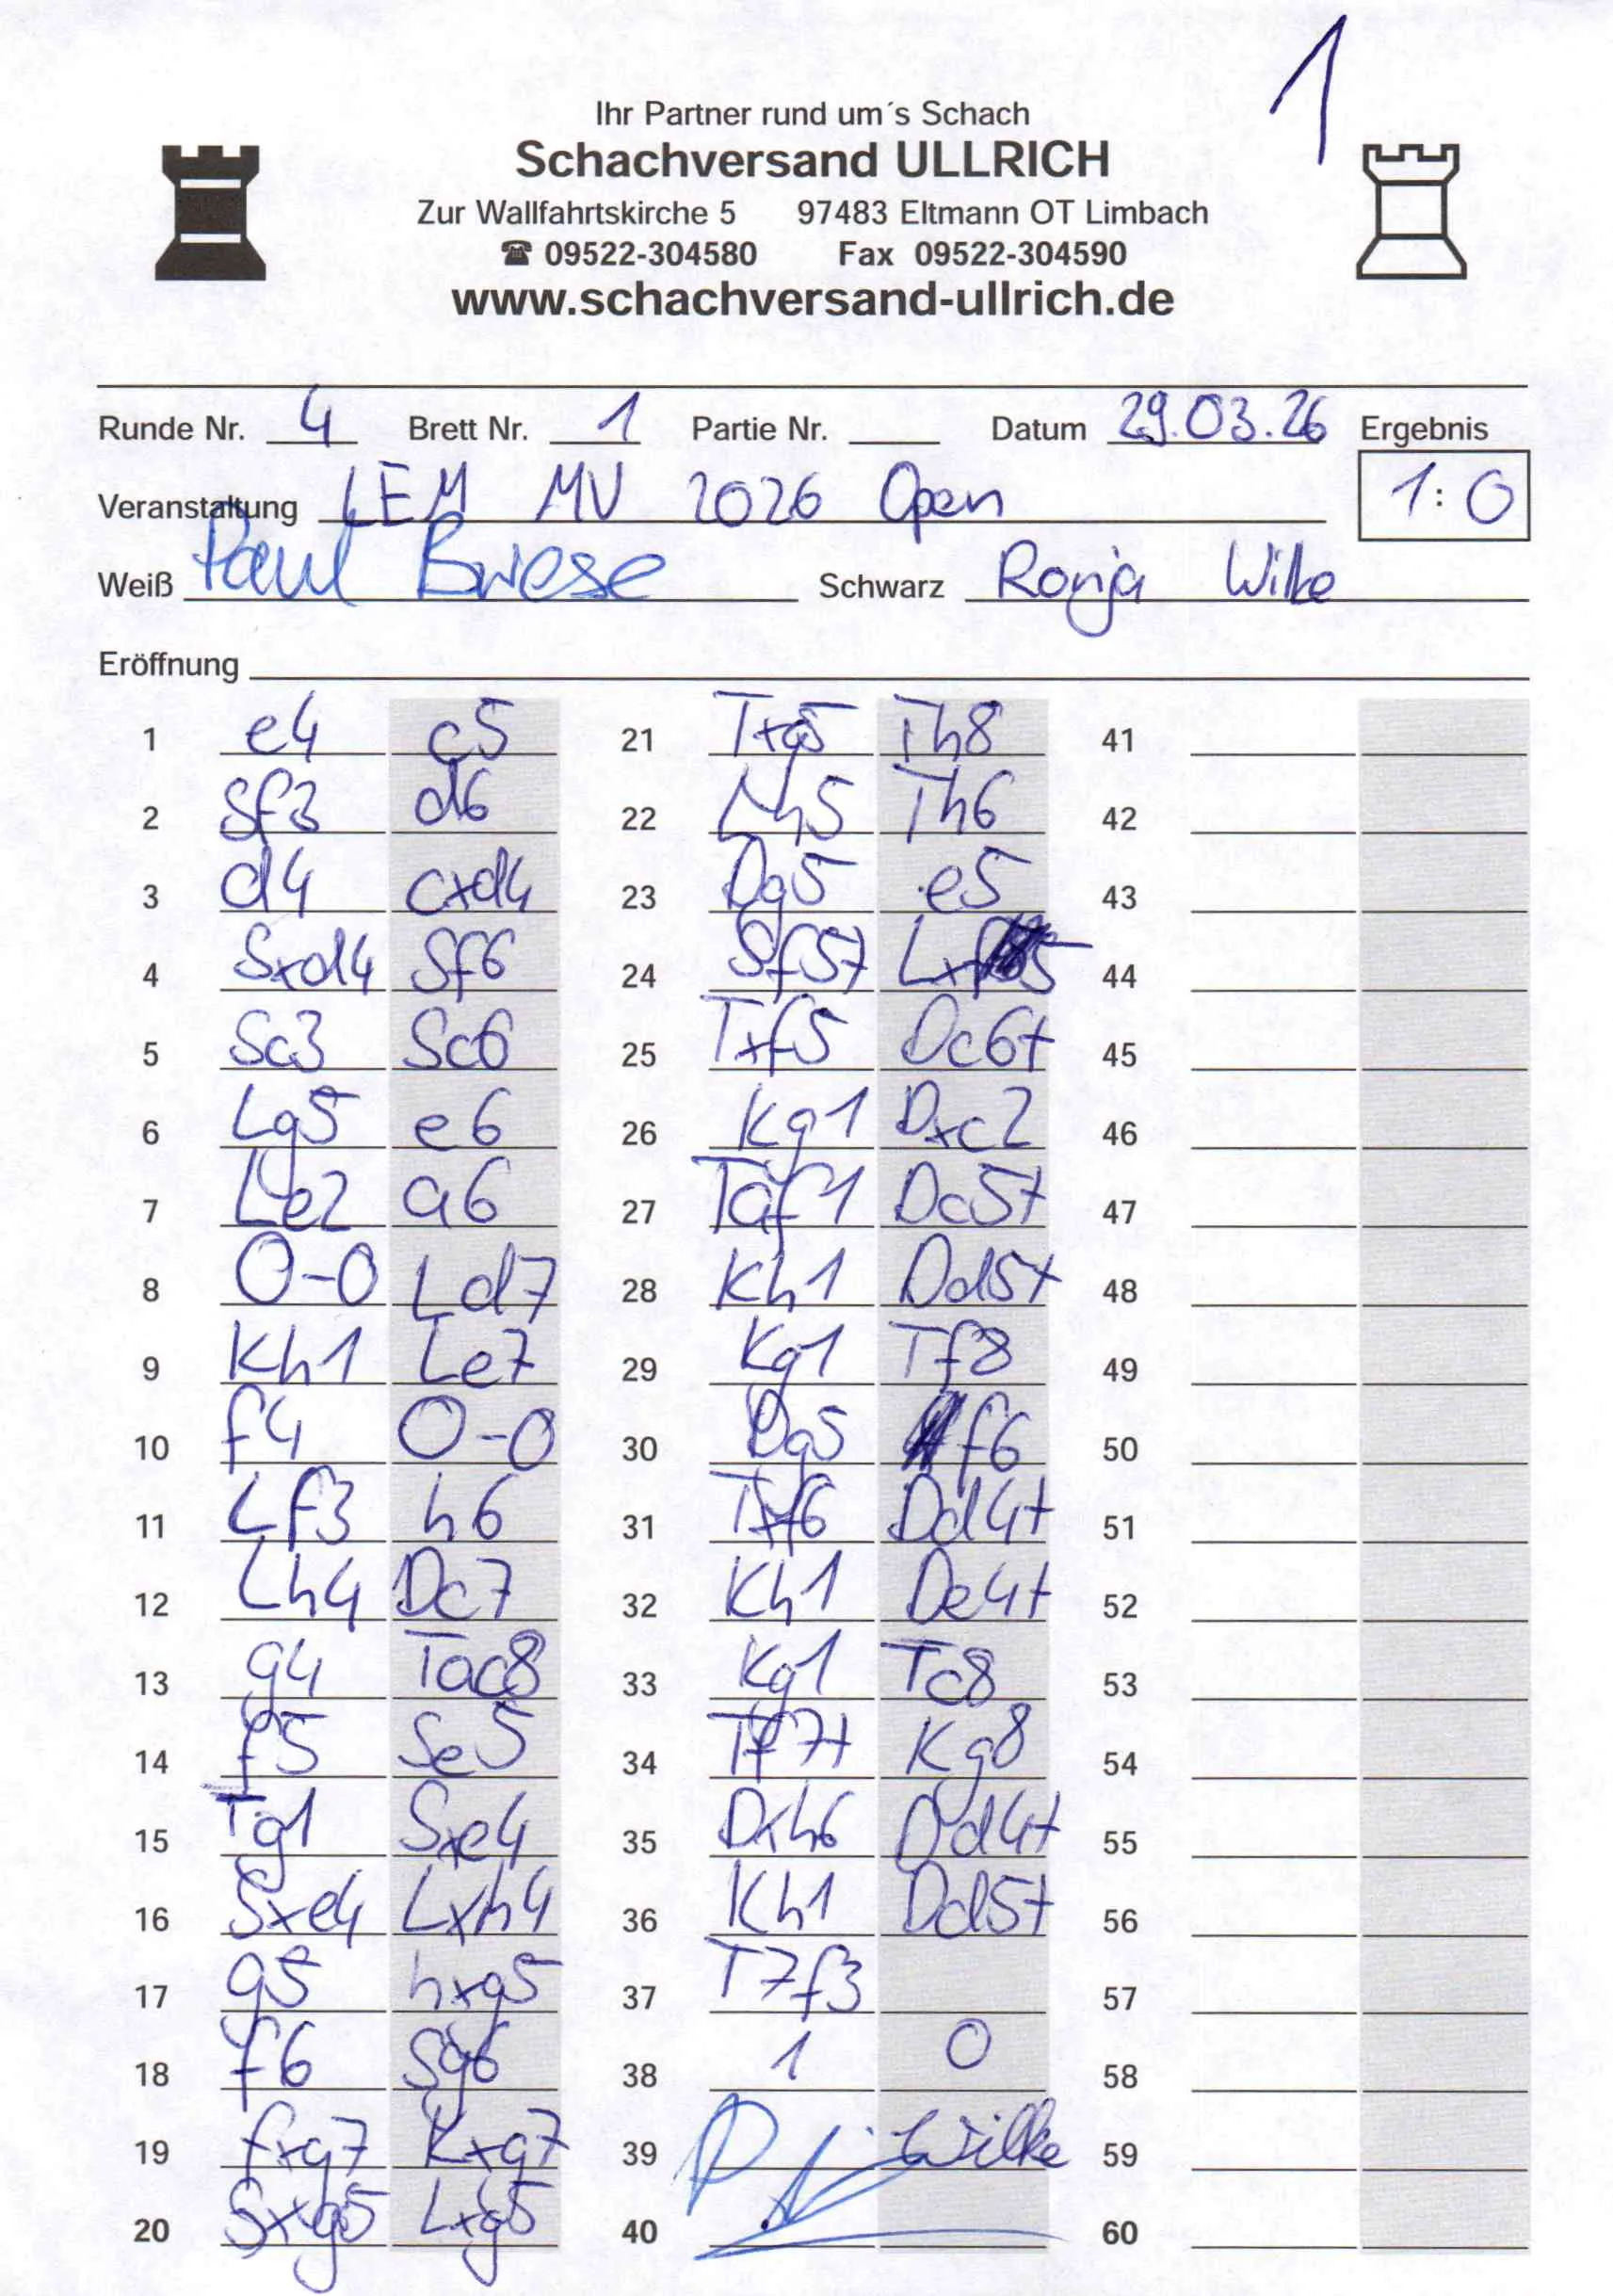 1
Ihr Partner rund um´s Schach
Schachversand ULLRICH
Zur Wallfahrtskirche 5 97483 Eltmann OT Limbach
☎ 09522-304580 Fax 09522-304590
www.schachversand-ullrich.de
Runde Nr. 4 Brett Nr. 1 Partie Nr. Datum 29.03.26 Ergebnis
Veranstaltung LEM MV 2026 Open 1:0
Weiß Paul Briese Schwarz Ronja Wilke
Eröffnung
1 e4 c5 21 Txg5 Th8 41
2 Sf3 d6 22 Lh5 Th6 42
3 d4 cxd4 23 Dg5 e5 43
4 Sxd4 Sf6 24 Sf5+ Lxf5 44
5 Sc3 Sc6 25 Txf5 Dc6+ 45
6 Lg5 e6 26 Kg1 Dxc2 46
7 Le2 a6 27 Taf1 Dc5+ 47
8 O-O Ld7 28 Kh1 Dd5+ 48
9 Kh1 Le7 29 Kg1 Tf8 49
10 f4 O-O 30 Dg5 f6 50
11 Lf3 h6 31 Txf6 Dd4+ 51
12 Lh4 Dc7 32 Kh1 De4+ 52
13 g4 Tac8 33 Kg1 Tc8 53
14 f5 Se5 34 Tf7+ Kg8 54
15 Tg1 Sxe4 35 Dxh6 Dd4+ 55
16 Sxe4 Lxh4 36 Kh1 Dd5+ 56
17 g5 hxg5 37 T7f3 57
18 f6 Sg6 38 1 0 58
19 fxg7 Kxg7 39 Wilke 59
20 Sxg5 Lxg5 40 60